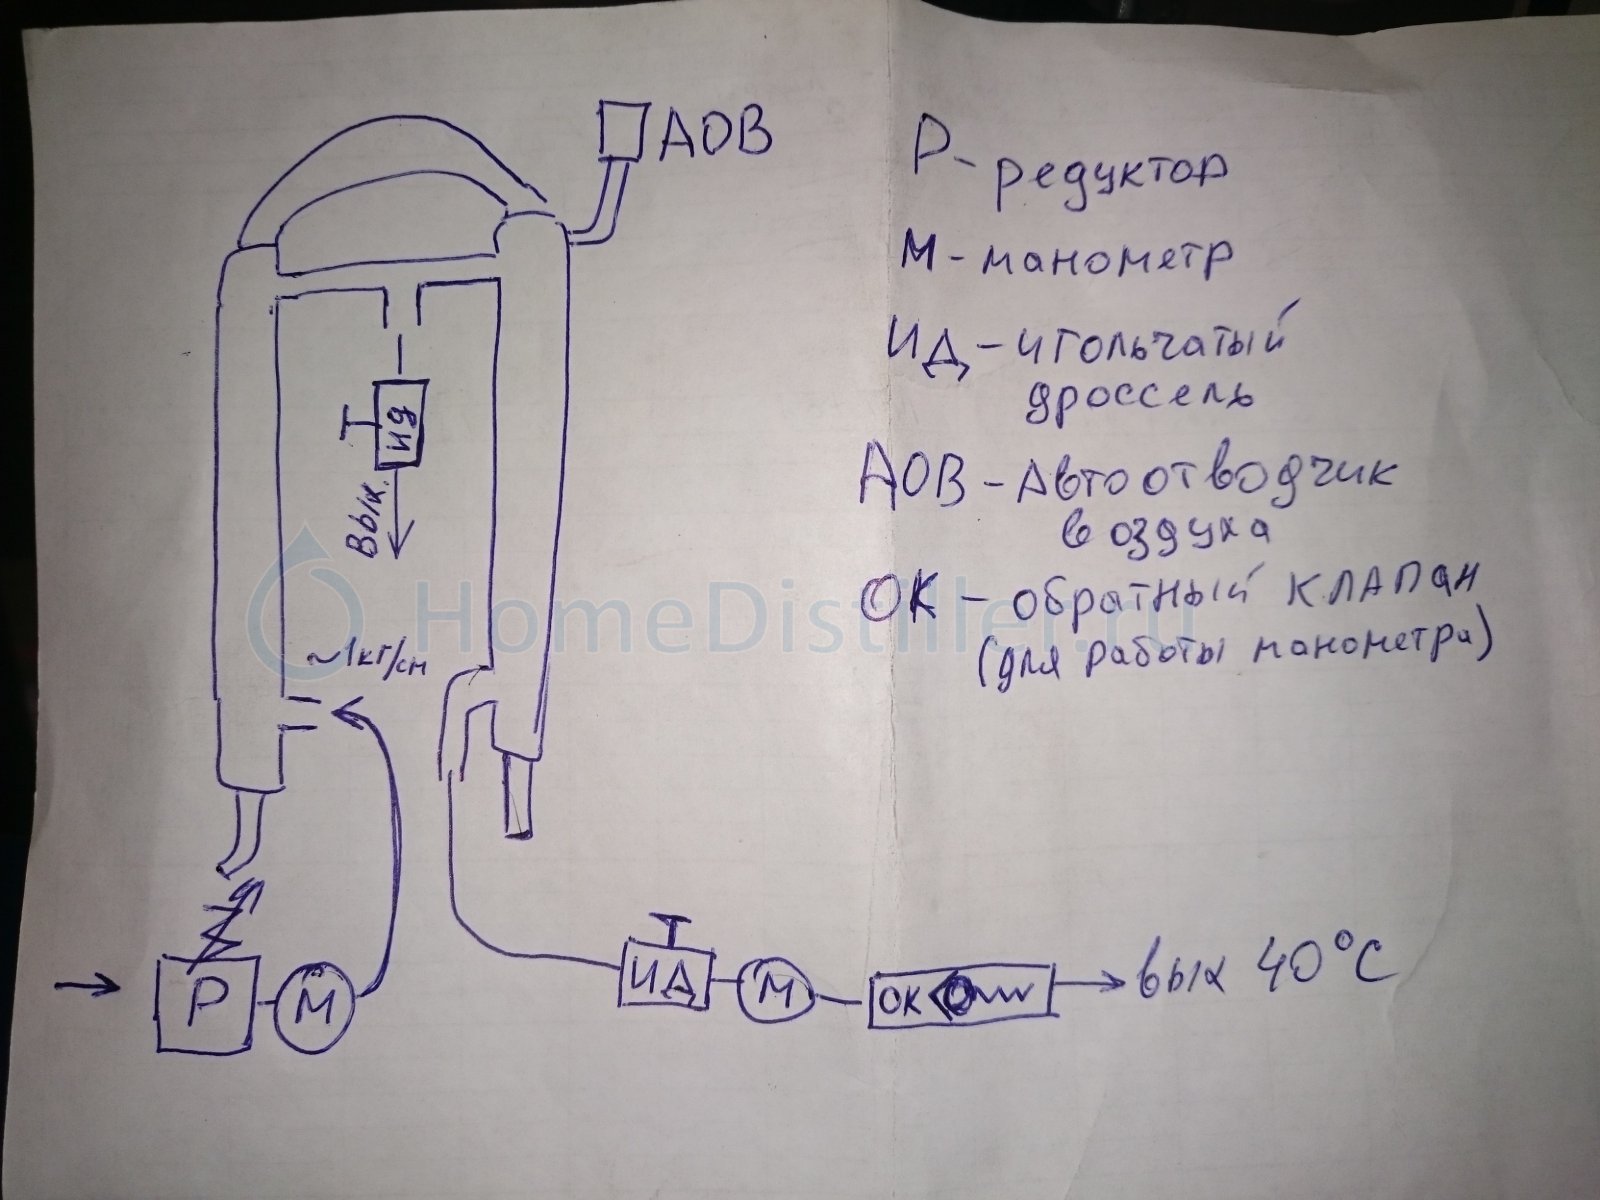 АОВ
Р - редуктор
М - манометр
ИД - игольчатый
дроссель
АОВ - Автоотводчик
воздуха
ОК - обратный клапан
(для работы манометра)
ИД
Вых.
HomeDistiller.ru
~1кг/см
Р
М
ИД
М
ОК
вых 40°C